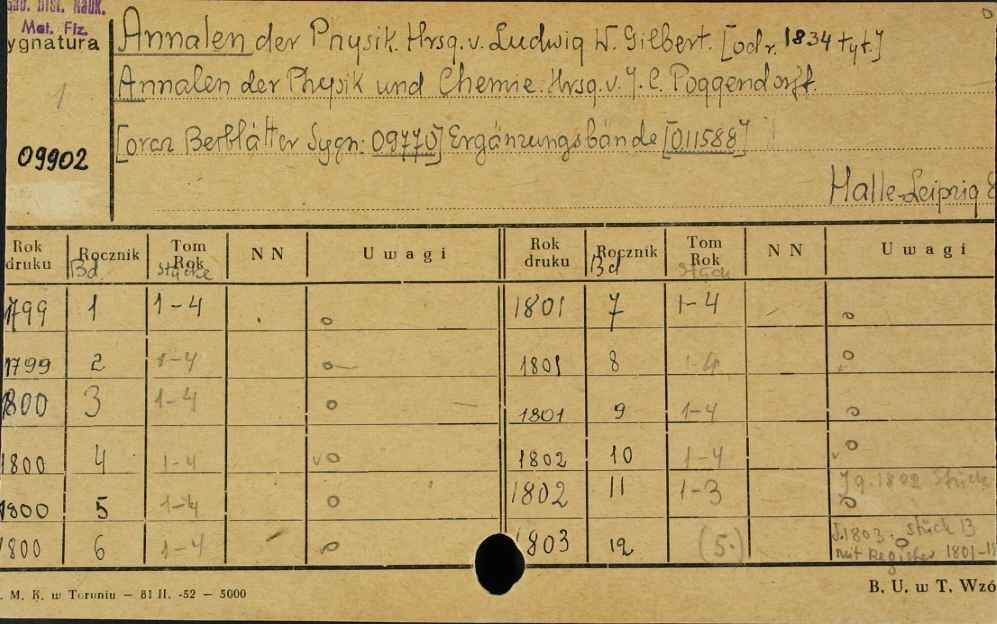 Mat. Fiz.
ygnatura
1
09902
Annalen der Physik. Hrsg. v. Ludwig W. Gilbert. [od r. 1834 tyt.]
Annalen der Physik und Chemie. Hrsg. v. J. C. Poggendorff.
[oraz Beiblätter Sygn: 09770] Ergänzungsbände [011588]
Halle-Leipzig 8
Rok druku Rocznik Bd. Tom Rok Stücke N N Uwagi Rok druku Rocznik Bd Tom Rok Stück N N Uwagi
1799 1 1-4 o 1801 7 1-4 o
1799 2 1-4 o 1801 8 1-4 o
1800 3 1-4 o 1801 9 1-4 o
1800 4 1-4 v o 1802 10 1-4 v o
1800 5 1-4 o 1802 11 1-3 Jg. 1802 Stück o
1800 6 1-4 o 1803 12 (5.) J. 1803. Stück 13 o
mit Register 1801-1
. M. K. w Toruniu — 81 II. -52 — 5000
B. U. w T. Wzó